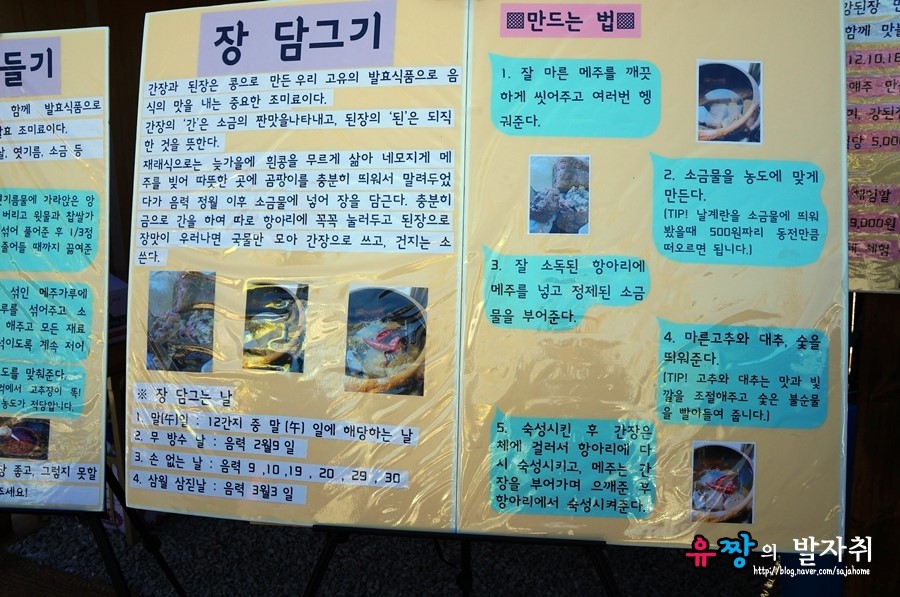 들기
함께 발효식품으로
발효 조미료이다.
엿기름, 소금 등
엿기름물에 가라앉은 앙
버리고 윗물과 찹쌀가
섞어 풀어준 후 1/3정
줄어들 때까지 끓여준
섞인 메주가루에
루를 섞어주고 소
해주고 모든 재료
섞이도록 계속 저어
도를 맞춰준다.
에서 고추장이 똑!
농도가 적당합니다.
장 좋고, 그렇지 못할
세요!
장 담그기
간장과 된장은 콩으로 만든 우리 고유의 발효식품으로 음
식의 맛을 내는 중요한 조미료이다.
간장의 '간'은 소금의 짠맛을나타내고, 된장의 '된'은 되직
한 것을 뜻한다.
재래식으로는 늦가을에 흰콩을 무르게 삶아 네모지게 메
주를 빚어 따뜻한 곳에 곰팡이를 충분히 띄워서 말려두었
다가 음력 정월 이후 소금물에 넣어 장을 담근다. 충분히
금으로 간을 하여 따로 항아리에 꼭꼭 눌러두고 된장으로
장맛이 우러나면 국물만 모아 간장으로 쓰고, 건지는 소
쓴다.
※ 장 담그는 날
1. 말(午)일 : 12간지 중 말 (午) 일에 해당하는 날
2. 무 방수 날 : 음력 2월9일
3. 손 없는 날 : 음력 9 ,10 ,19 , 20 , 29 , 30
4. 삼월 삼진날 : 음력 3월3일
▩만드는 법▩
1. 잘 마른 메주를 깨끗
하게 씻어주고 여러번 헹
궈준다.
2. 소금물을 농도에 맞게
만든다.
(TIP! 날계란을 소금물에 띄워
봤을때 500원짜리 동전만큼
떠오르면 됩니다.)
3. 잘 소독된 항아리에
메주를 넣고 정제된 소금
물을 부어준다.
4. 마른고추와 대추, 숯을
띄워준다.
(TIP! 고추와 대추는 맛과 빛
깔을 조절해주고 숯은 불순물
을 빨아들여 줍니다.)
5. 숙성시킨 후 간장은
체에 걸러서 항아리에 다
시 숙성시키고, 메주는 간
장을 부어가며 으깨준 후
항아리에서 숙성시켜준다.
강된장
함께 맛
12.10.18
메주 만
강된
5,00
체험할
9,000원
체험
유짱의 발자취
http://blog.naver.com/sajahome